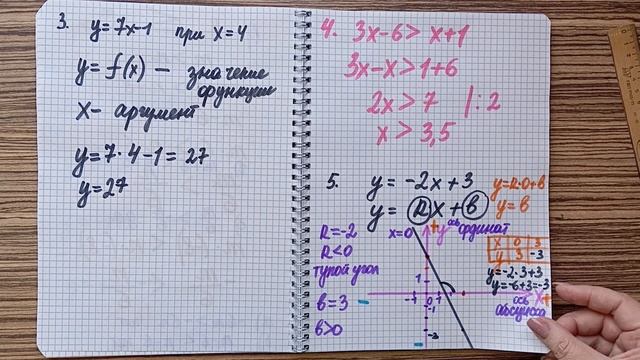 3. y=7x-1 при x=4
y=f(x) - значение
функции
x- аргумент
y=7·4-1=27
y=27
4. 3x-6>x+1
3x-x>1+6
2x>7 |:2
x>3,5
5. y=-2x+3
y=kx+b
y=k·0+b
y=b
k=-2
k<0
тупой угол
b=3
b>0
x=0
+y ось ординат
x 0 3
y 3 -3
y=-2·3+3
y=-6+3=-3
x+
ось
абсцисса
1
-1 0 1
-1
-3